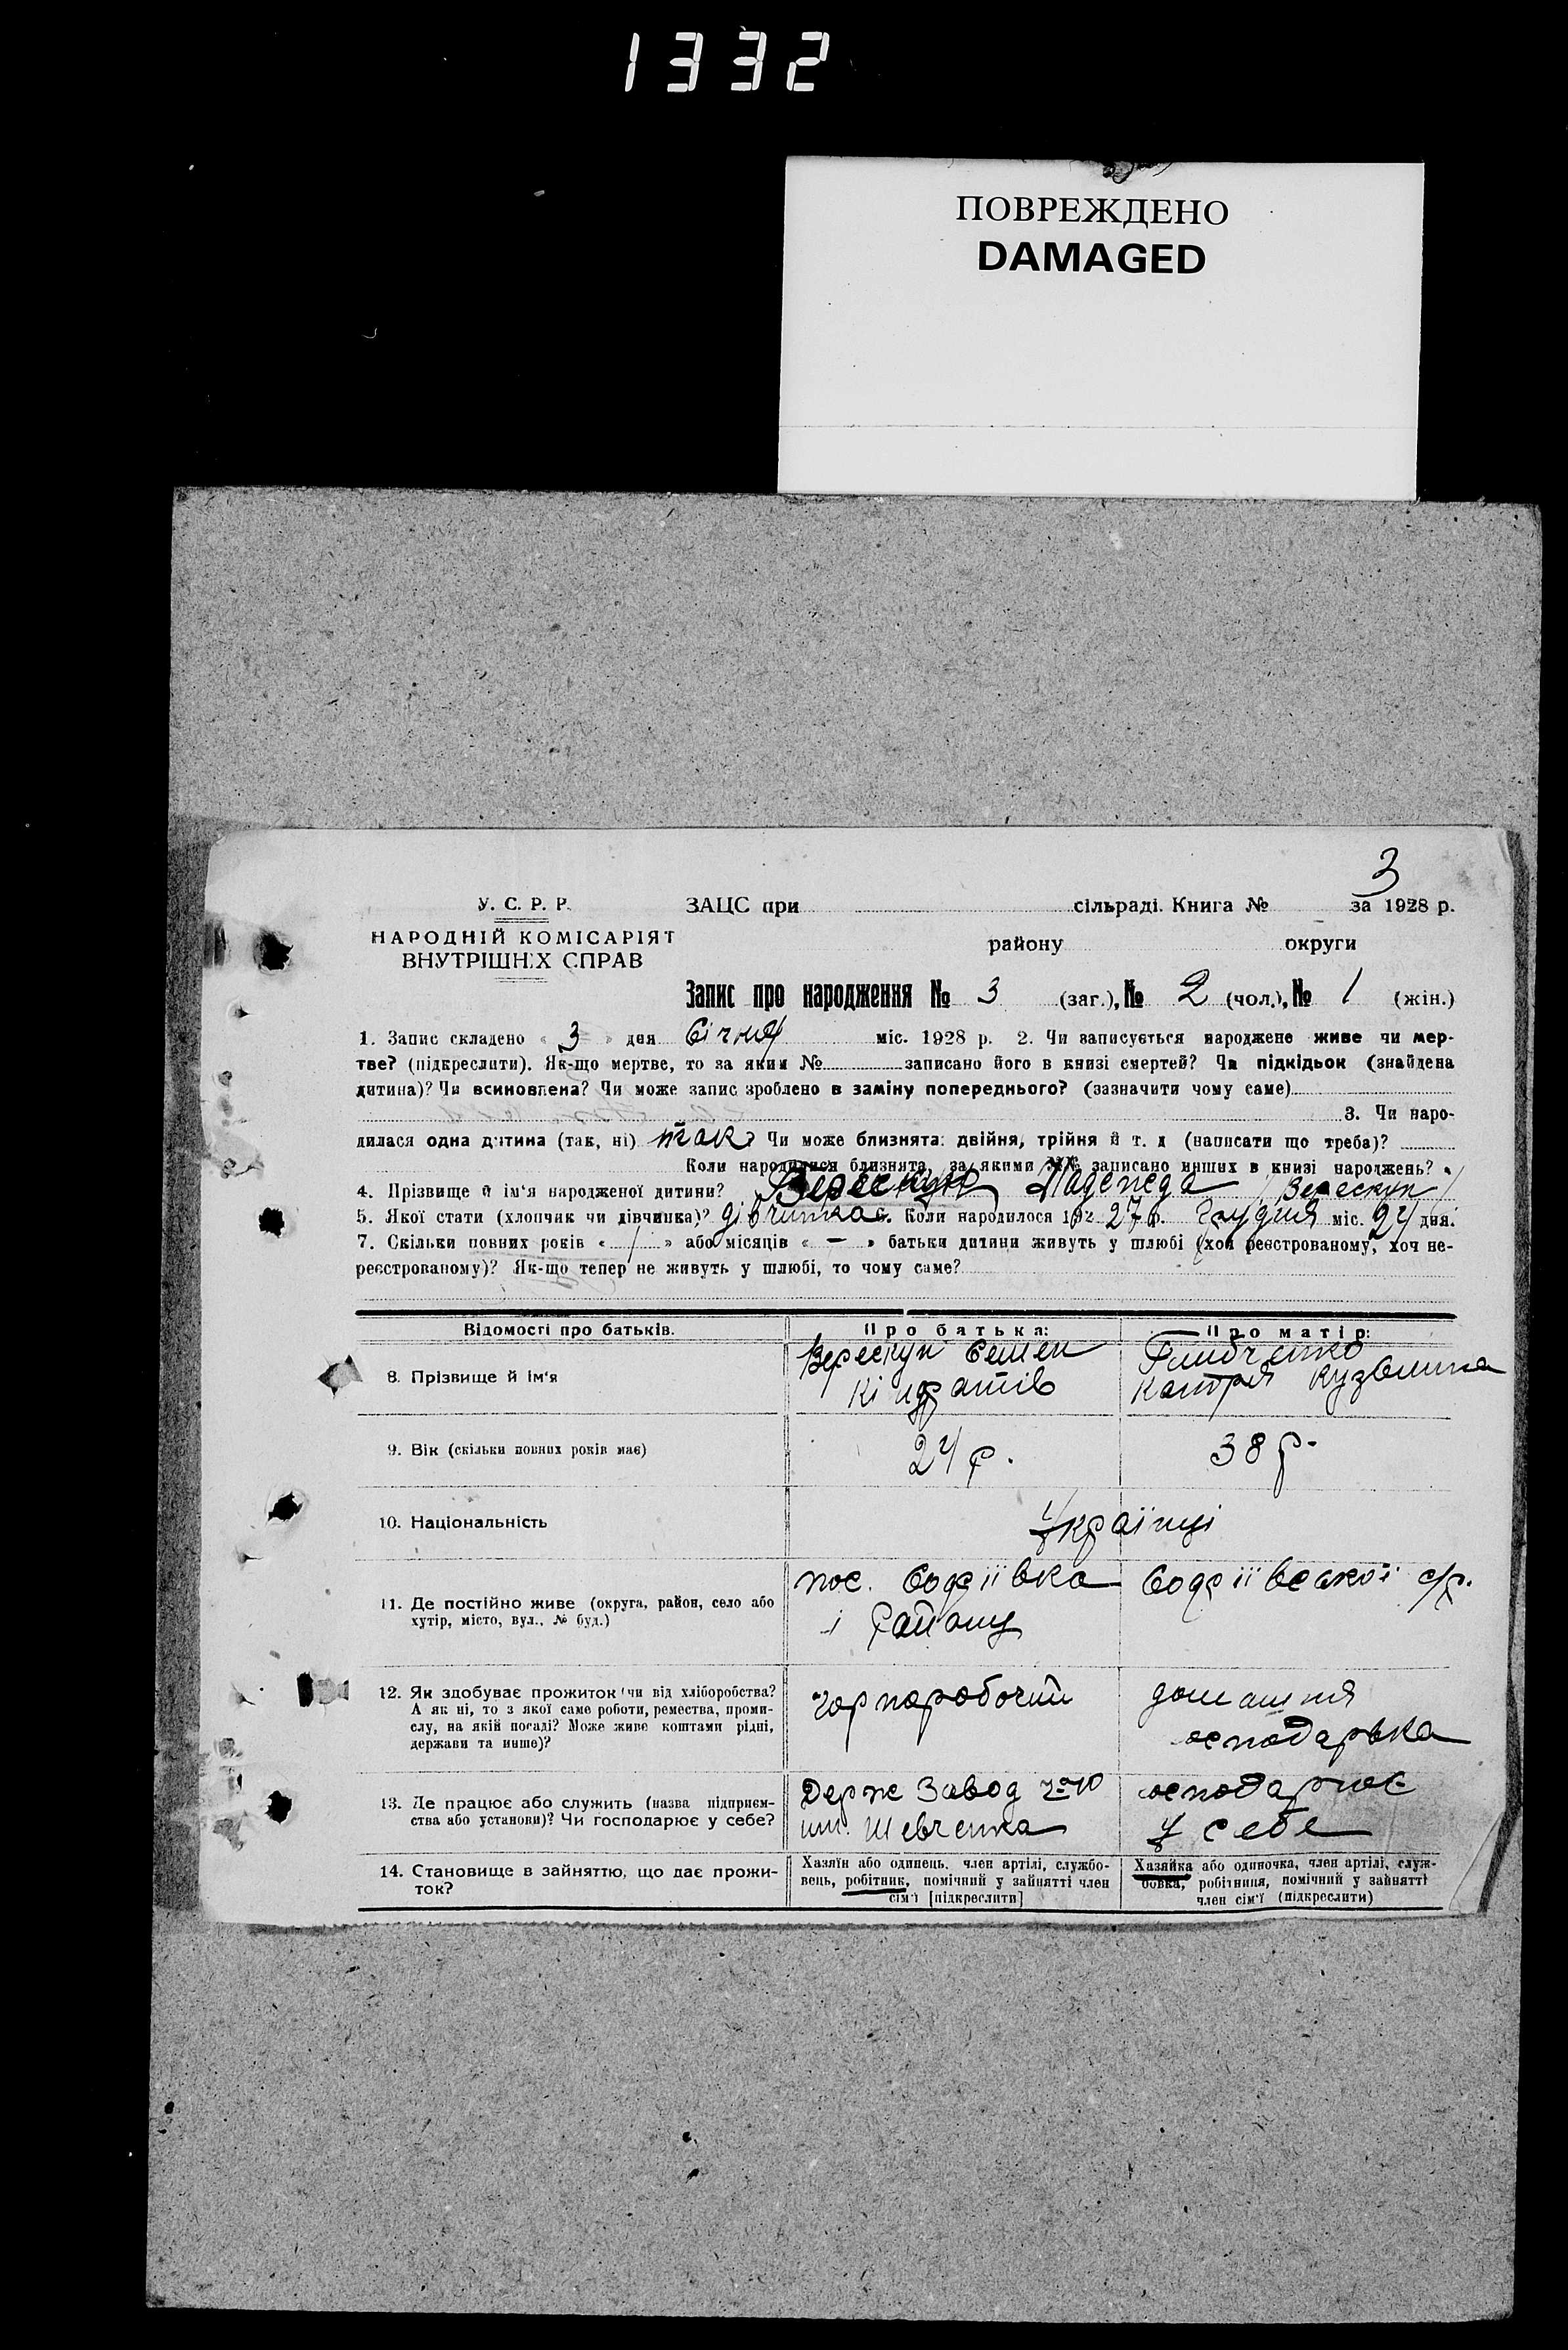 1332
ПОВРЕЖДЕНО
DAMAGED
3
У. С. Р. Р. ЗАЦС при сільраді. Книга № за 1928 р.
НАРОДНІЙ КОМІСАРІЯТ району округи
ВНУТРІШНІХ СПРАВ
Запис про народження № 3 (заг.), № 2 (чол.), № 1 (жін.)
1. Запис складено « 3 » дня Січня міс. 1928 р. 2. Чи записується народжене живе чи мер-
тве? (підкреслити). Як-що мертве, то за яким № записано його в книзі смертей? Чи підкідьок (знайдена
дитина)? Чи всиновлена? Чи може запис зроблено в заміну попереднього? (зазначити чому саме)
3. Чи наро-
дилася одна дитина (так, ні) так Чи може близнята: двійня, трійня й т. д (написати що треба)?
Коли народилися близнята, за якими №№ записано инших в книзі народжень?
4. Прізвище й ім'я народженої дитини? Верескун Надежда / Верескун /
5. Якої стати (хлопчак чи дівчинка)? дівчинка 6. Коли народилося 192 27 р. Грудня міс. 24 дня.
7. Скільки повних років « 1 » або місяців « — » батьки дитини живуть у шлюбі (хоч реєстрованому, хоч не-
реєстрованому)? Як-що тепер не живуть у шлюбі, то чому саме?
Відомості про батьків. Про батька: Про матір:
8. Прізвище й ім'я Верескун Семен
Кіндратів
Катря Кузьмина
9. Вік (скільки повних років має) 24 р. 38 р.
10. Національність Українці
11. Де постійно живе (округа, район, село або
хутір, місто, вул., № буд.)
пос. і Району
с/р.
12. Як здобуває прожиток (чи від хліборобства?
А як ні, то з якої саме роботи, ремества, проми-
слу, на якій посаді? Може живе коштами рідні,
держави та инше)?
чорнаробочий
домашня
осподарька
13. Де працює або служить (назва підприєм-
ства або установи)? Чи господарює у себе?
Держ Завод
им. Шевченка
осподарює
у себе
14. Становище в зайняттю, що дає прожи-
ток?
Хазяїн або одинець, член артілі, службо-
вець, робітник, помічний у зайнятті член
сім'ї [підкреслити]
Хазяйка або одиночка, член артілі, служ-
бовка, робітниця, помічний у зайнятті
член сім'ї (підкреслити)